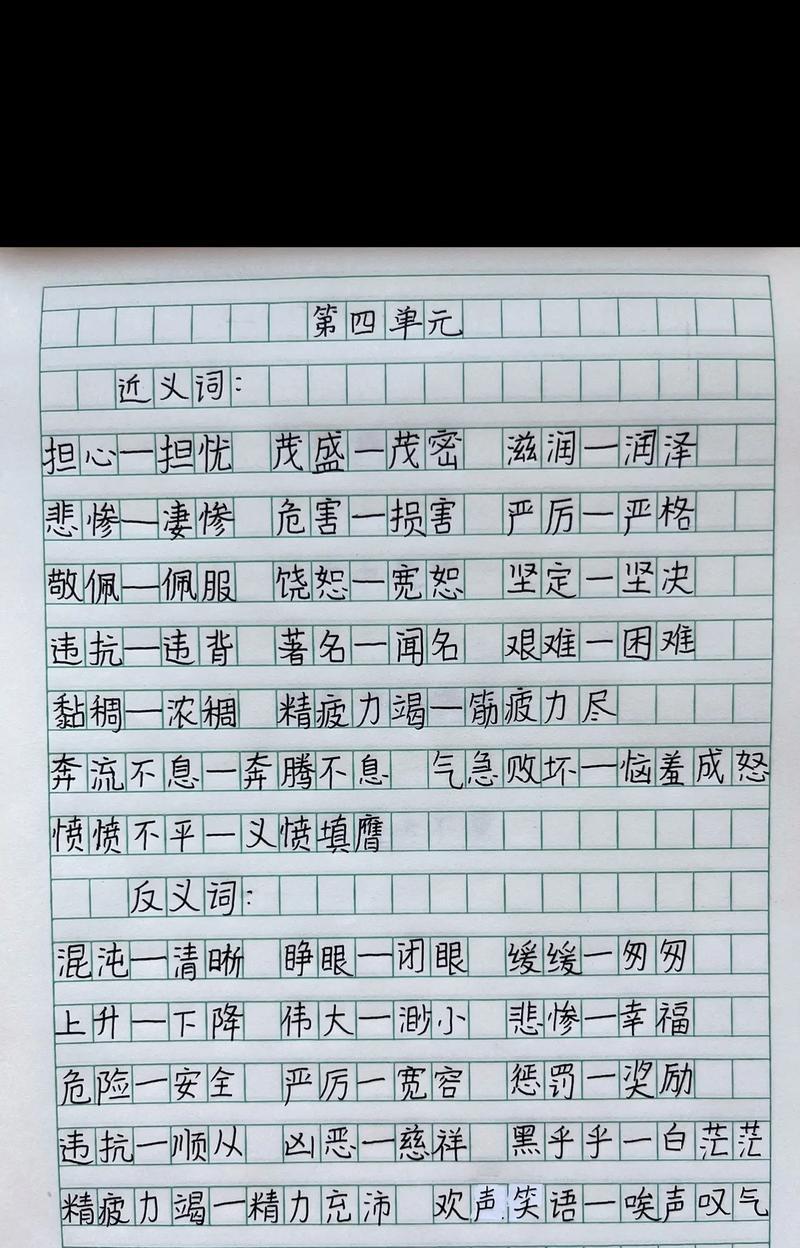 第四单元
近义词:
担心—担忧 茂盛—茂密 滋润—润泽
悲惨—凄惨 危害—损害 严厉—严格
敬佩—佩服 饶恕—宽恕 坚定—坚决
违抗—违背 著名—闻名 艰难—困难
黏稠—浓稠 精疲力竭—筋疲力尽
奔流不息—奔腾不息 气急败坏—恼羞成怒
愤愤不平—义愤填膺
反义词:
混沌—清晰 睁眼—闭眼 缓缓—匆匆
上升—下降 伟大—渺小 悲惨—幸福
危险—安全 严厉—宽容 惩罚—奖励
违抗—顺从 凶恶—慈祥 黑乎乎—白茫茫
精疲力竭—精力充沛 欢声笑语—唉声叹气